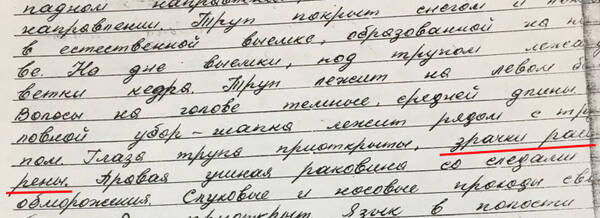 падном направлении
направлении. Труп покрыт снегом и
в естественной выемке, образованной на
ве. На дне выемки, под трупом лежа
ветки кедра. Труп лежит на левом б
Волосы на голове темные, средней длины.
ловной убор - шапка лежит рядом с тру
пом. Глаза трупа приоткрыты, зрачки рас
рены. Правая ушная раковина со следами
обморожения. Слуховые и носовые проходы
приоткрыт Язык в полости